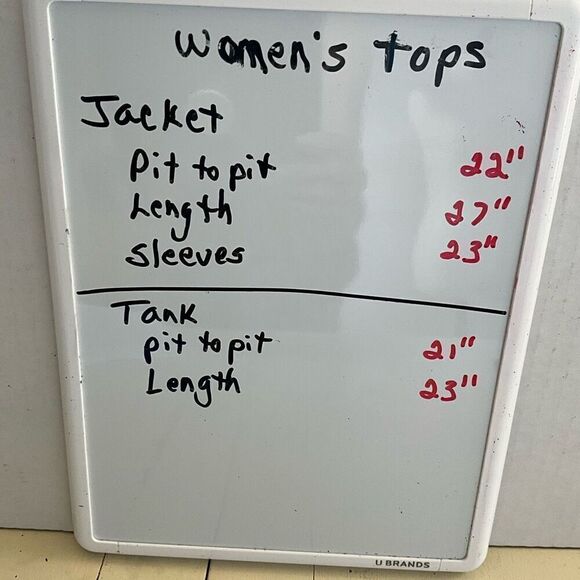 Women's tops
Jacket
Pit to pit 22"
Length 27"
Sleeves 23"
Tank
pit to pit 21"
Length 23"
U BRANDS